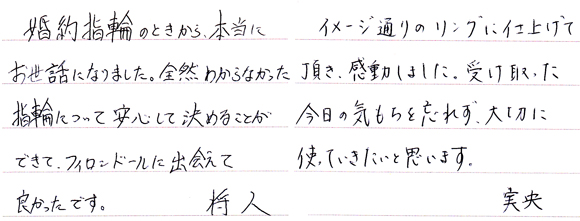 婚約指輪のときから、本当に
お世話になりました。全然わからなかった
指輪について安心して決めることが
できて、フィロンドールに出会えて
良かったです。
将人
イメージ通りのリングに仕上げて
頂き、感動しました。受け取った
今日の気もちを忘れず、大切に
使っていきたいと思います。
実央